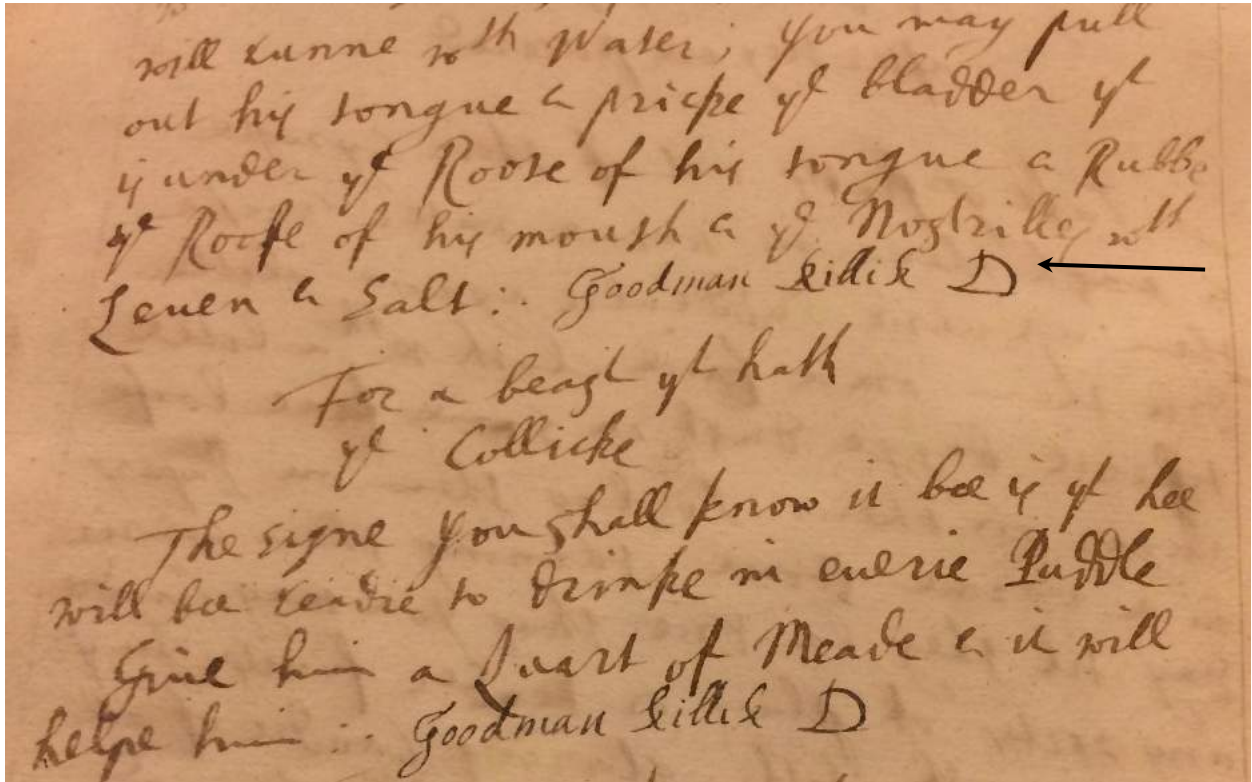 will runne wth Water; you may pull
out his tongue & pricke ye bladder yt
is under ye Roote of his tongue & Rubbe
ye Roofe of his mouth & ye Nostrilles wth
Leuen & Salt:. Goodman Killik D
For a beast yt hath
ye Collicke
The signe you shall know it bee is yt hee
will bee readie to drinke in euerie Puddle
Giue him a Quart of Meade & it will
helpe him :. Goodman Killik D